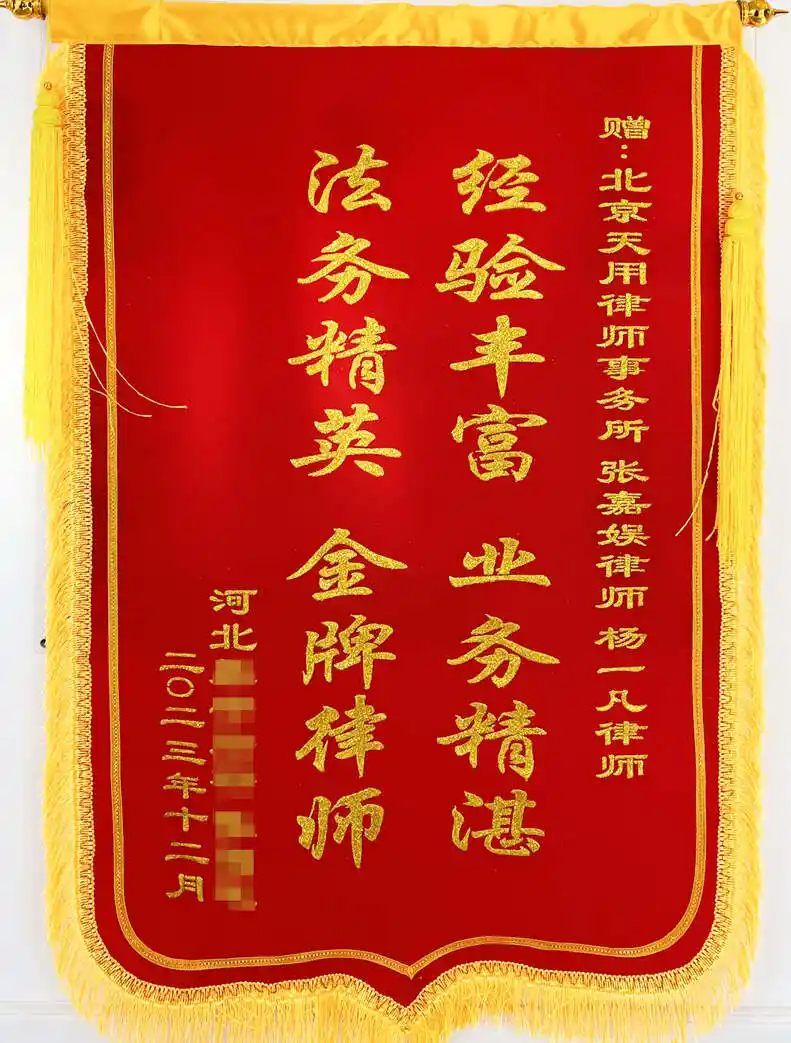 赠:北京天用律师事务所 张嘉娱律师 杨一凡律师
经验丰富 业务精湛
法务精英 金牌律师
河北
二〇二三年十二月